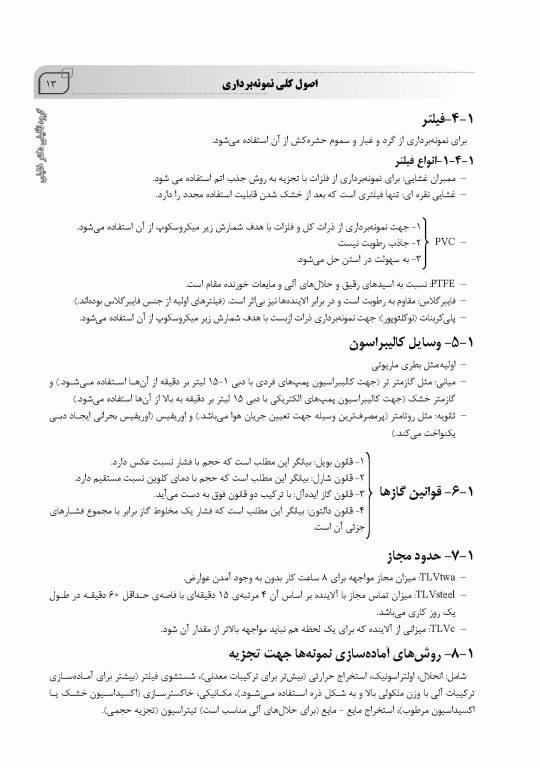 اصول کلی نمونه‌برداری
۱۳
گروه تألیفی دکتر خلیلی
۱-۴-فیلتر
برای نمونه‌برداری از گرد و غبار و سموم حشره‌کش از آن استفاده می‌شود.
۱-۴-۱-انواع فیلتر
– ممبران غشایی: برای نمونه‌برداری از فلزات با تجزیه به روش جذب اتم استفاده می شود.
– غشایی نقره ای: تنها فیلتری است که بعد از خشک شدن قابلیت استفاده مجدد را دارد.
۱- جهت نمونه‌برداری از ذرات کل و فلزات با هدف شمارش زیر میکروسکوپ از آن استفاده می‌شود.
– PVC ۲- جاذب رطوبت نیست
۳- به سهولت در استن حل می‌شود.
– PTFE: نسبت به اسیدهای رقیق و حلال‌های آلی و مایعات خورنده مقام است.
– فایبرگلاس: مقاوم به رطوبت است و در برابر الاینده‌ها نیز بی‌اثر است. (فیلترهای اولیه از جنس فایبرگلاس بوده‌اند.)
– پلی‌کربنات (نوکلئوپور): جهت نمونه‌برداری ذرات ازبست با هدف شمارش زیر میکروسکوپ از آن استفاده می‌شود.
۱-۵- وسایل کالیبراسون
– اولیه:مثل بطری ماریوتی
– میانی: مثل گازمتر تر (جهت کالیبراسیون پمپ‌های فردی با دبی ۱-۱۵ لیتر بر دقیقه از آن‌ها استفاده می‌شود.) و
گازمتر خشک (جهت کالیبراسیون پمپ‌های الکتریکی با دبی ۱۵ لیتر بر دقیقه به بالا از آن‌ها استفاده می‌شود.)
– ثانویه: مثل روتامتر (پرمصرف‌ترین وسیله جهت تعیین جریان هوا می‌باشد.) و اوریفیس (اوریفیس بحرانی ایجاد دبی
یکنواخت می‌کند.)
۱- قانون بویل: بیانگر این مطلب است که حجم با فشار نسبت عکس دارد.
۲- قانون شارل: بیانگر این مطلب است که حجم با دمای کلوین نسبت مستقیم دارد.
۱-۶- قوانین گازها
۳- قانون گاز ایده‌آل: با ترکیب دو قانون فوق به دست می‌آید.
۴- قانون دالتون: بیانگر این مطلب است که فشار یک مخلوط گاز برابر با مجموع فشارهای
جزئی آن است.
۱-۷- حدود مجاز
– TLVtwa: میزان مجاز مواجهه برای ۸ ساعت کار بدون به وجود آمدن عوارض.
– TLVsteel: میزان تماس مجاز با آلاینده بر اساس آن ۴ مرتبه‌ی ۱۵ دقیقه‌ای با فاصه‌ی حداقل ۶۰ دقیقه در طول
یک روز کاری می‌باشد.
– TLVc: میزانی از آلاینده که برای یک لحظه هم نباید مواجهه بالاتر از مقدار آن شود.
۱-۸- روش‌های آماده‌سازی نمونه‌ها جهت تجزیه
شامل: انحلال، اولتراسونیک، استخراج حرارتی (بیش‌تر برای ترکیبات معدنی)، شستشوی فیلتر (بیشتر برای آماده‌سازی
ترکیبات آلی با وزن ملکولی بالا و به شکل ذره استفاده می‌شود.)، مکانیکی، خاکسترسازی (اکسیداسیون خشک یا
اکسیداسیون مرطوب)، استخراج مایع – مایع (برای حلال‌های آلی مناسب است) تیتراسیون (تجزیه حجمی).